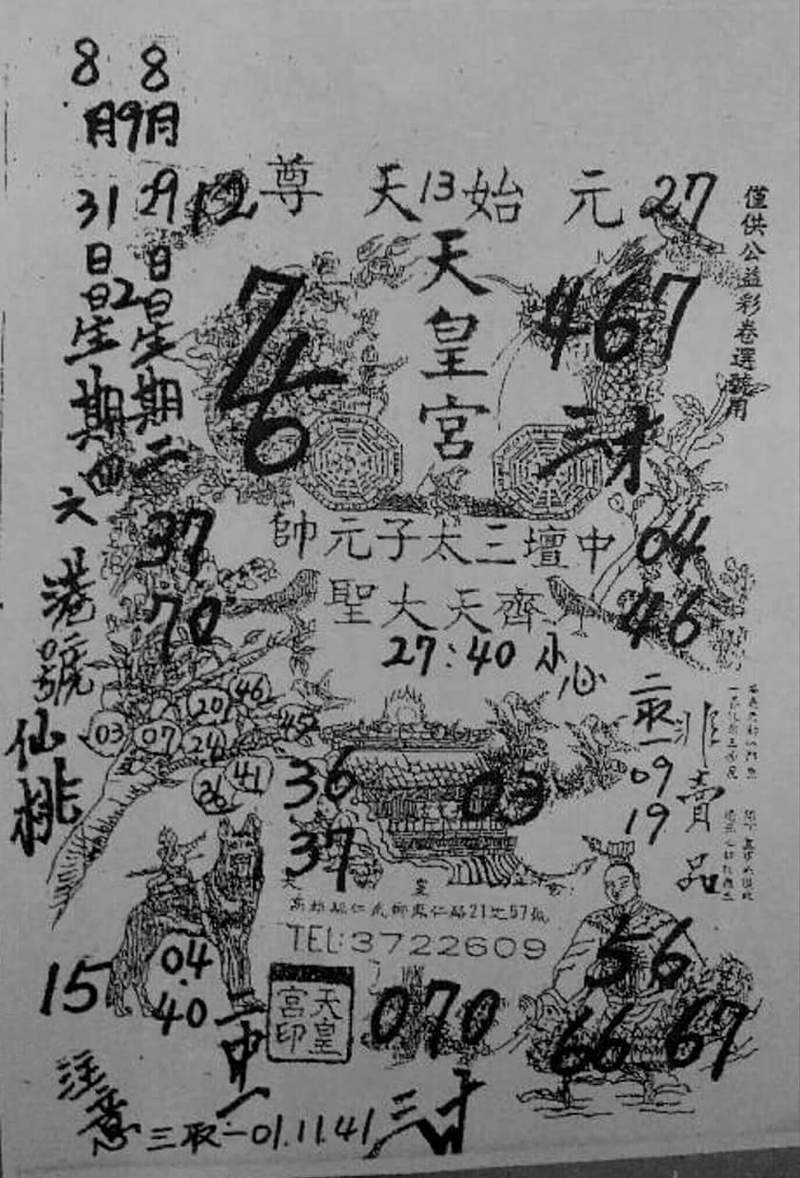 8月31日星期四六港號仙桃
8月29日星期二
9
2
12
尊天始元
13
27
僅供公益彩卷選號用
天皇宮
7
6
467
三才
帥元子太三壇中
聖大天齊
37
70
04
46
27:40 小心
二取一
09
19
非賣品
20
46
45
03
07
24
36
41
36
37
03
天皇宮
高雄縣仁武鄉鳳仁路21之57號
TEL:3722609
15
04.
40
二中一
天皇宮印
070
56
66 67
注意
三取一01.11.41
三才